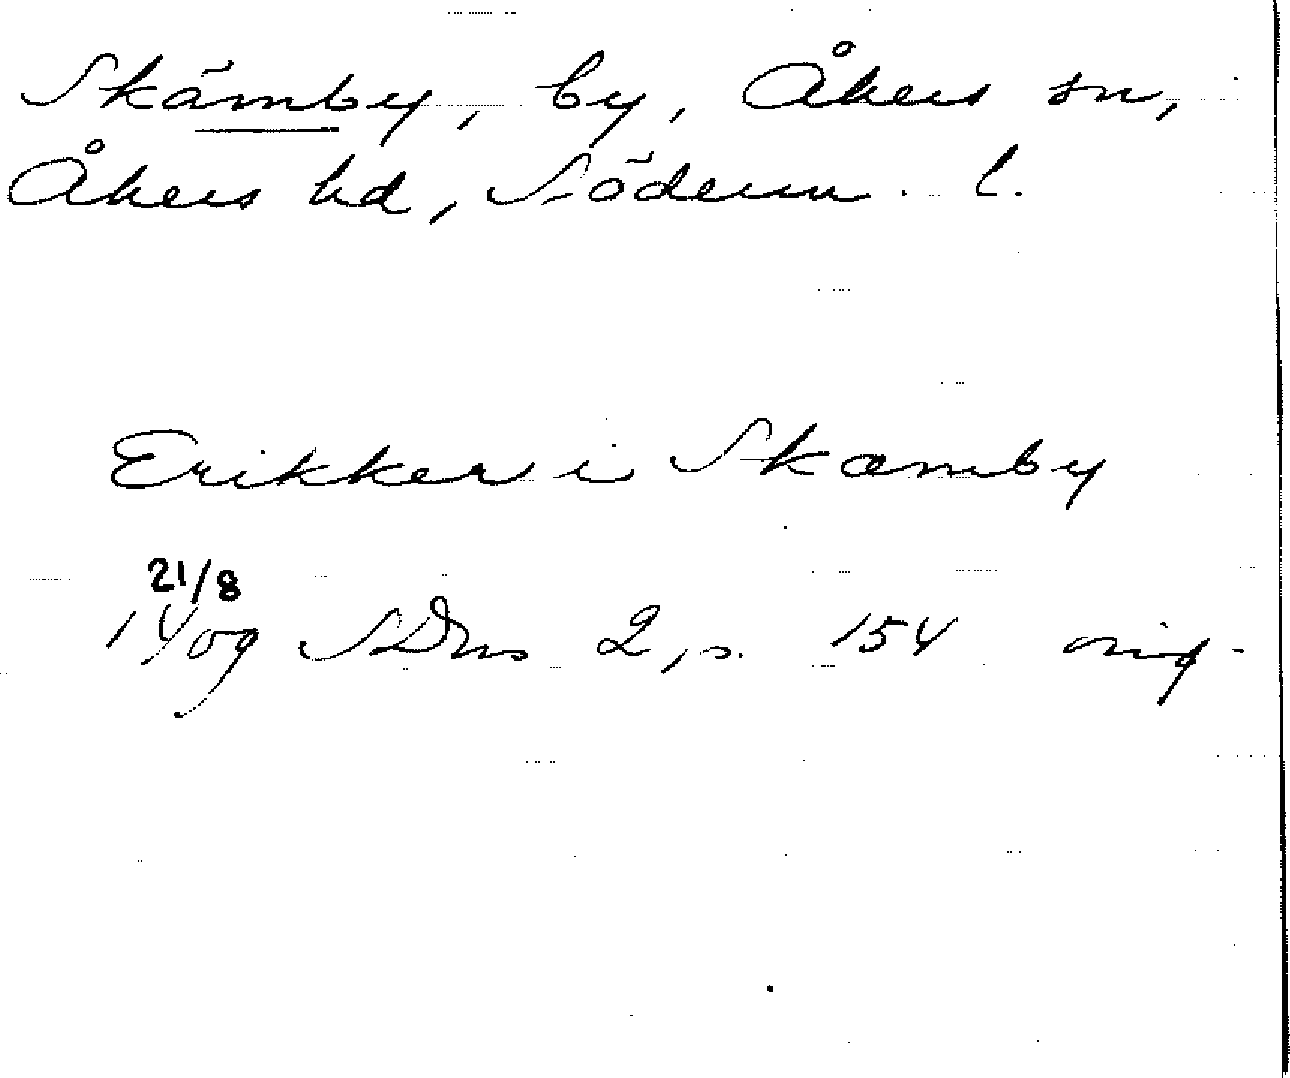 Skämby, by, Åkers sn,
Åkers hd, Söderm. l.
Erikker i Skæmby
21/8
1409 SDns 2, s. 154 orig.